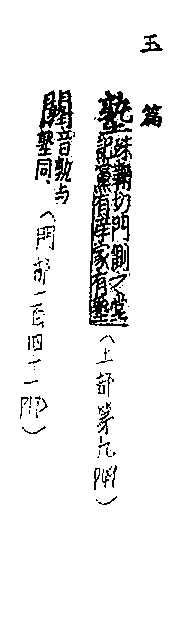 玉篇
塾殊鞠切門側之堂
記黨有庠家有塾(土部第九)
音孰与
塾同(門部一百四十一)